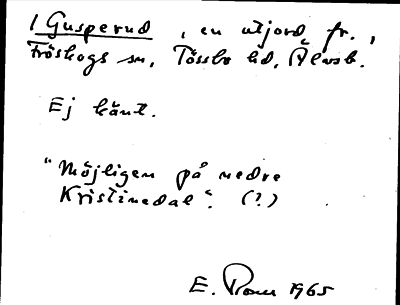 1 Gusperud, en utjord fr.,
Fröskogs sn, Tössbo hd, Älvsb.
Ej känt.
"Möjligen på nedre
Kristinedal". (?)
E. 1965